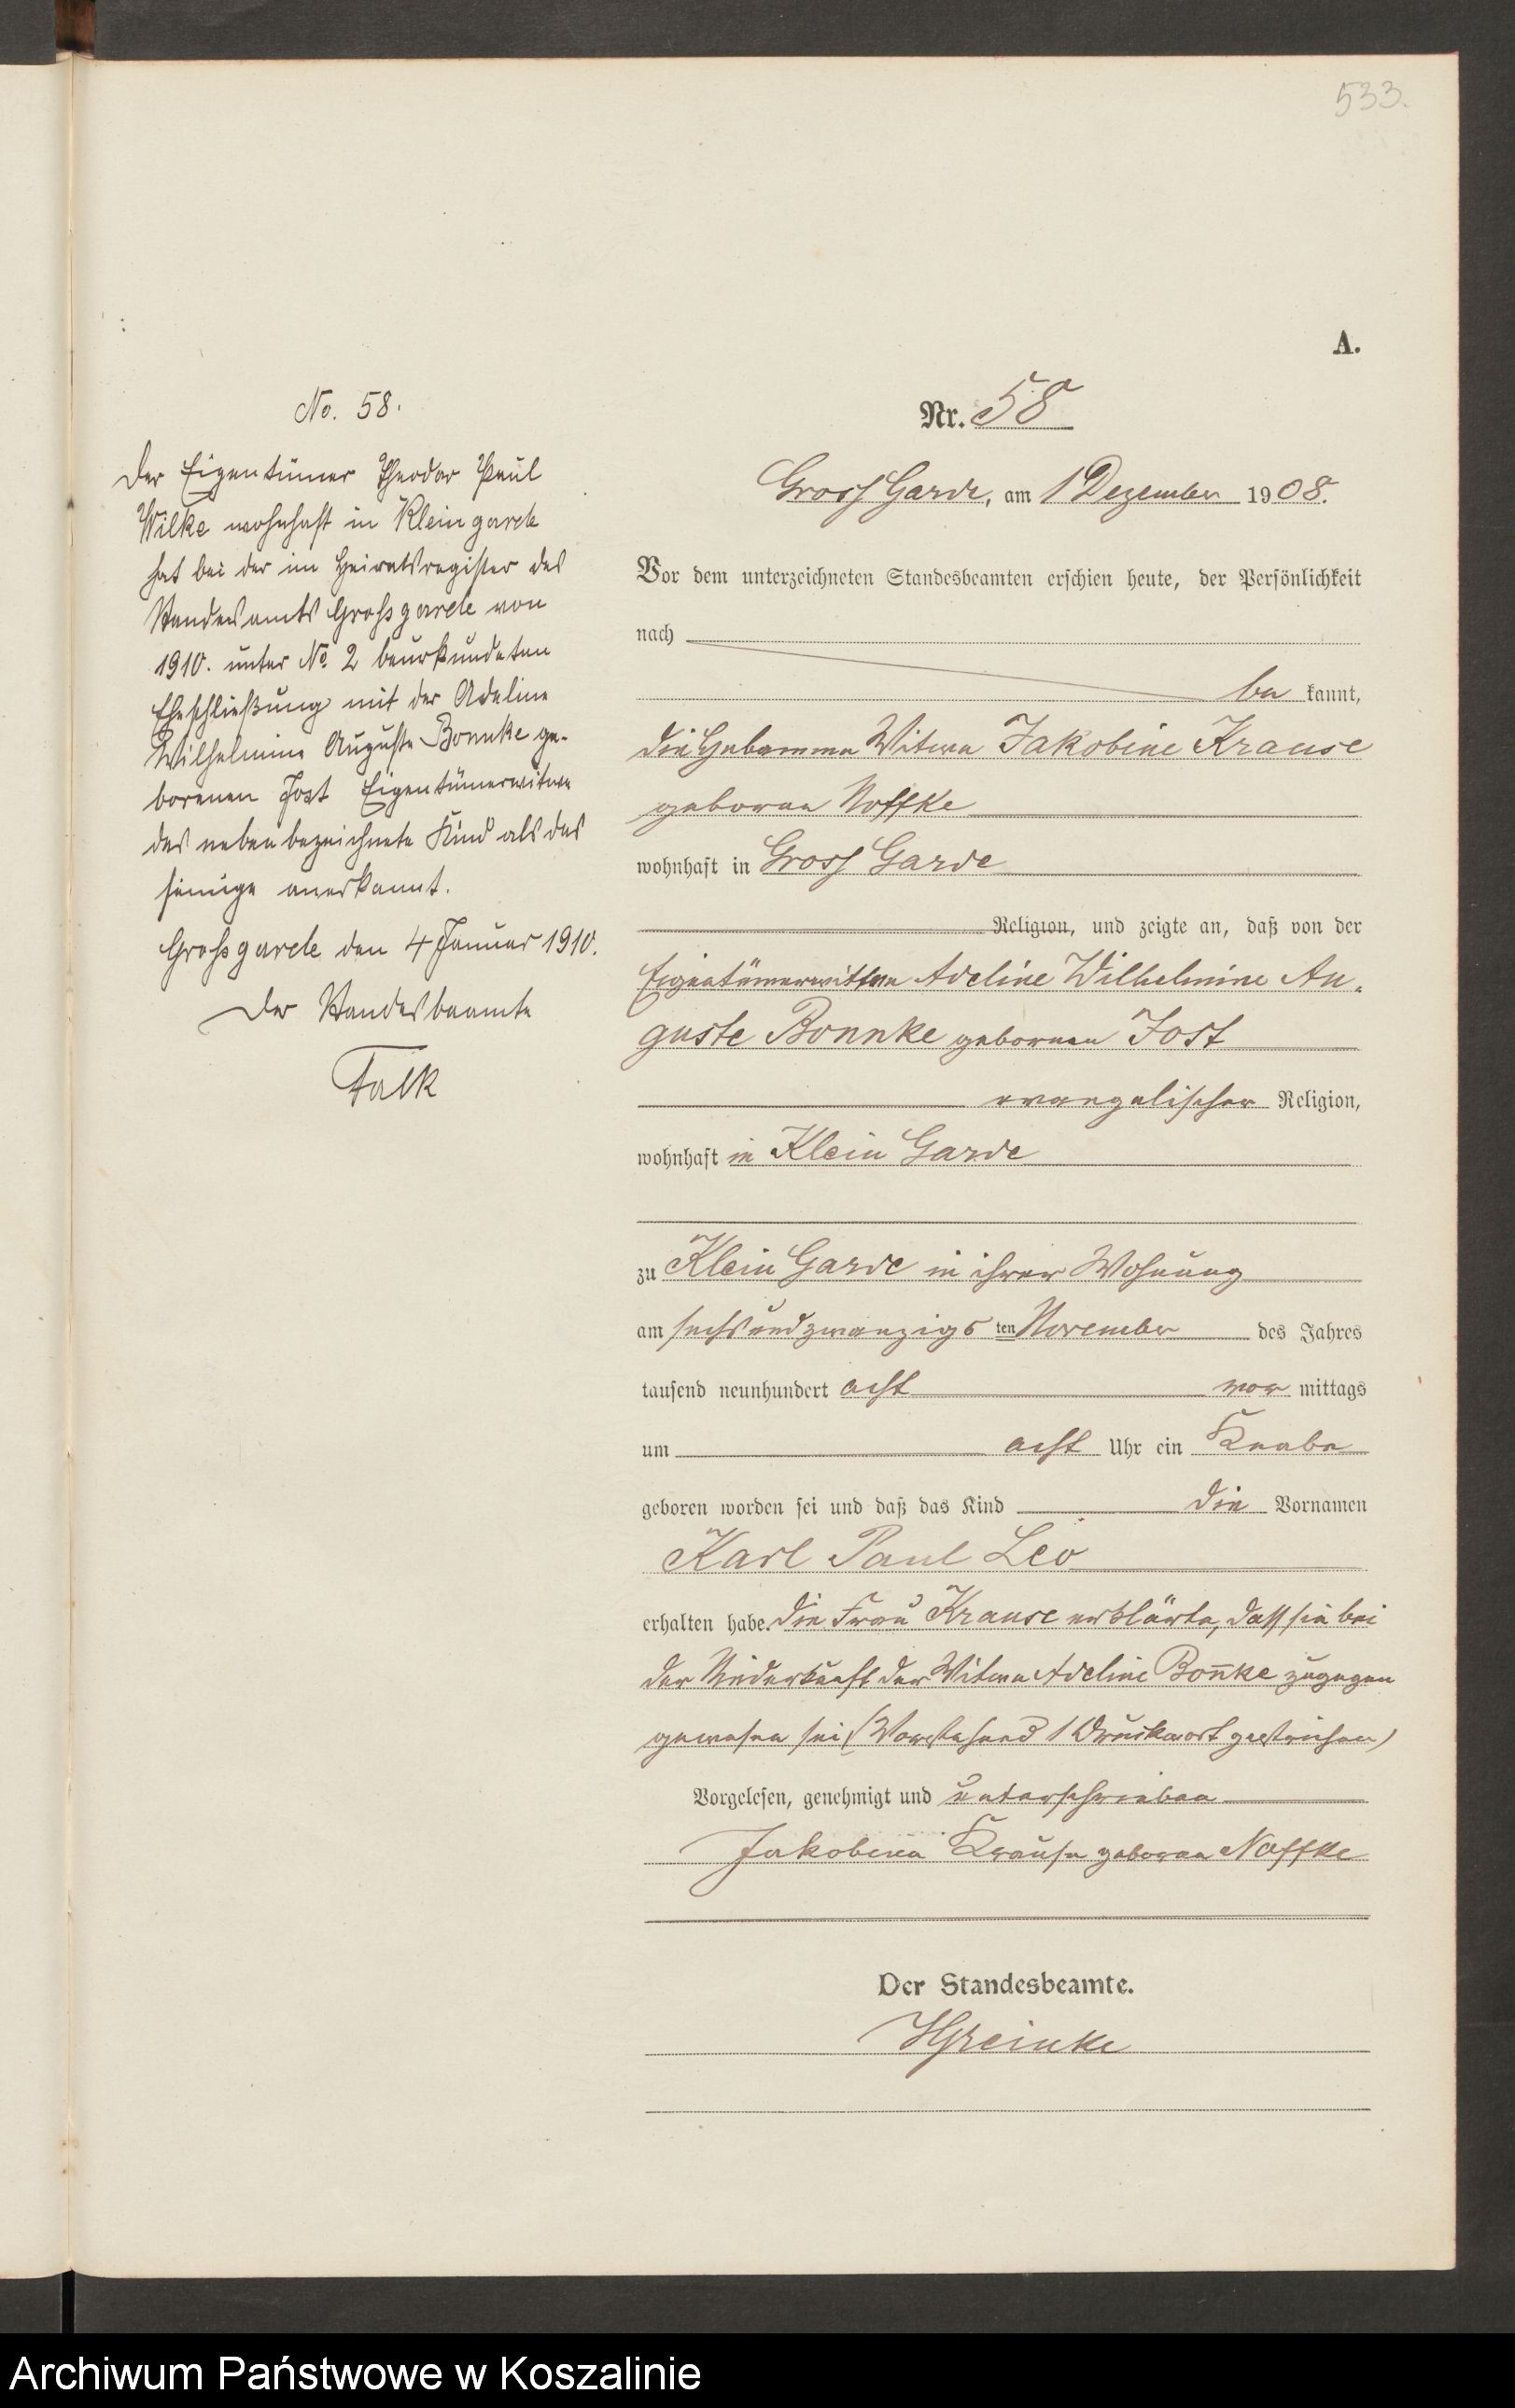 533.
A.
No. 58.
Der Eigentümer Theodor Paul
Wilke wohnhaft in Kleingarde
hat bei der im Heiratsregister des
Standesamts Großgarde von
1910. unter No 2 beurkundeten
Eheschließung mit der Adeline
Wilhelmine Auguste Bonnke ge-
borenen Jost Eigentümerwitwe
das nebenbezeichnete Kind als das
seinige anerkannt.
Großgarde den 4 Januar 1910.
Der Standesbeamte
Falk
Nr. 58
Gross Garde, am 1 Dezember 1908.
Vor dem unterzeichneten Standesbeamten erschien heute, der Persönlichkeit
nach
be kannt,
die Hebamme Witwe Jakobine Krause
geborene Noffke
wohnhaft in Gross Garde
Religion, und zeigte an, daß von der
Eigentümerwittwe Adeline Wilhelmine Au-
guste Bonnke geborenen Jost
evangelischer Religion,
wohnhaft in Klein Garde
zu Klein Garde in ihrer Wohnung
am sechsundzwanzigs ten November des Jahres
tausend neunhundert acht vor mittags
um acht Uhr ein Knabe
geboren worden sei und daß das Kind die Vornamen
Karl Paul Leo
erhalten habe. Die Frau Krause erklärte, dass sie bei
der Niederkunft der Witwe Adeline Bon̅ke zugegen
gewesen sei (Vorstehend 1 Druckwort gestrichen)
Vorgelesen, genehmigt und unterschrieben
Jakobine Krause geborene Noffke
Der Standesbeamte.
Archiwum Państwowe w Koszalinie